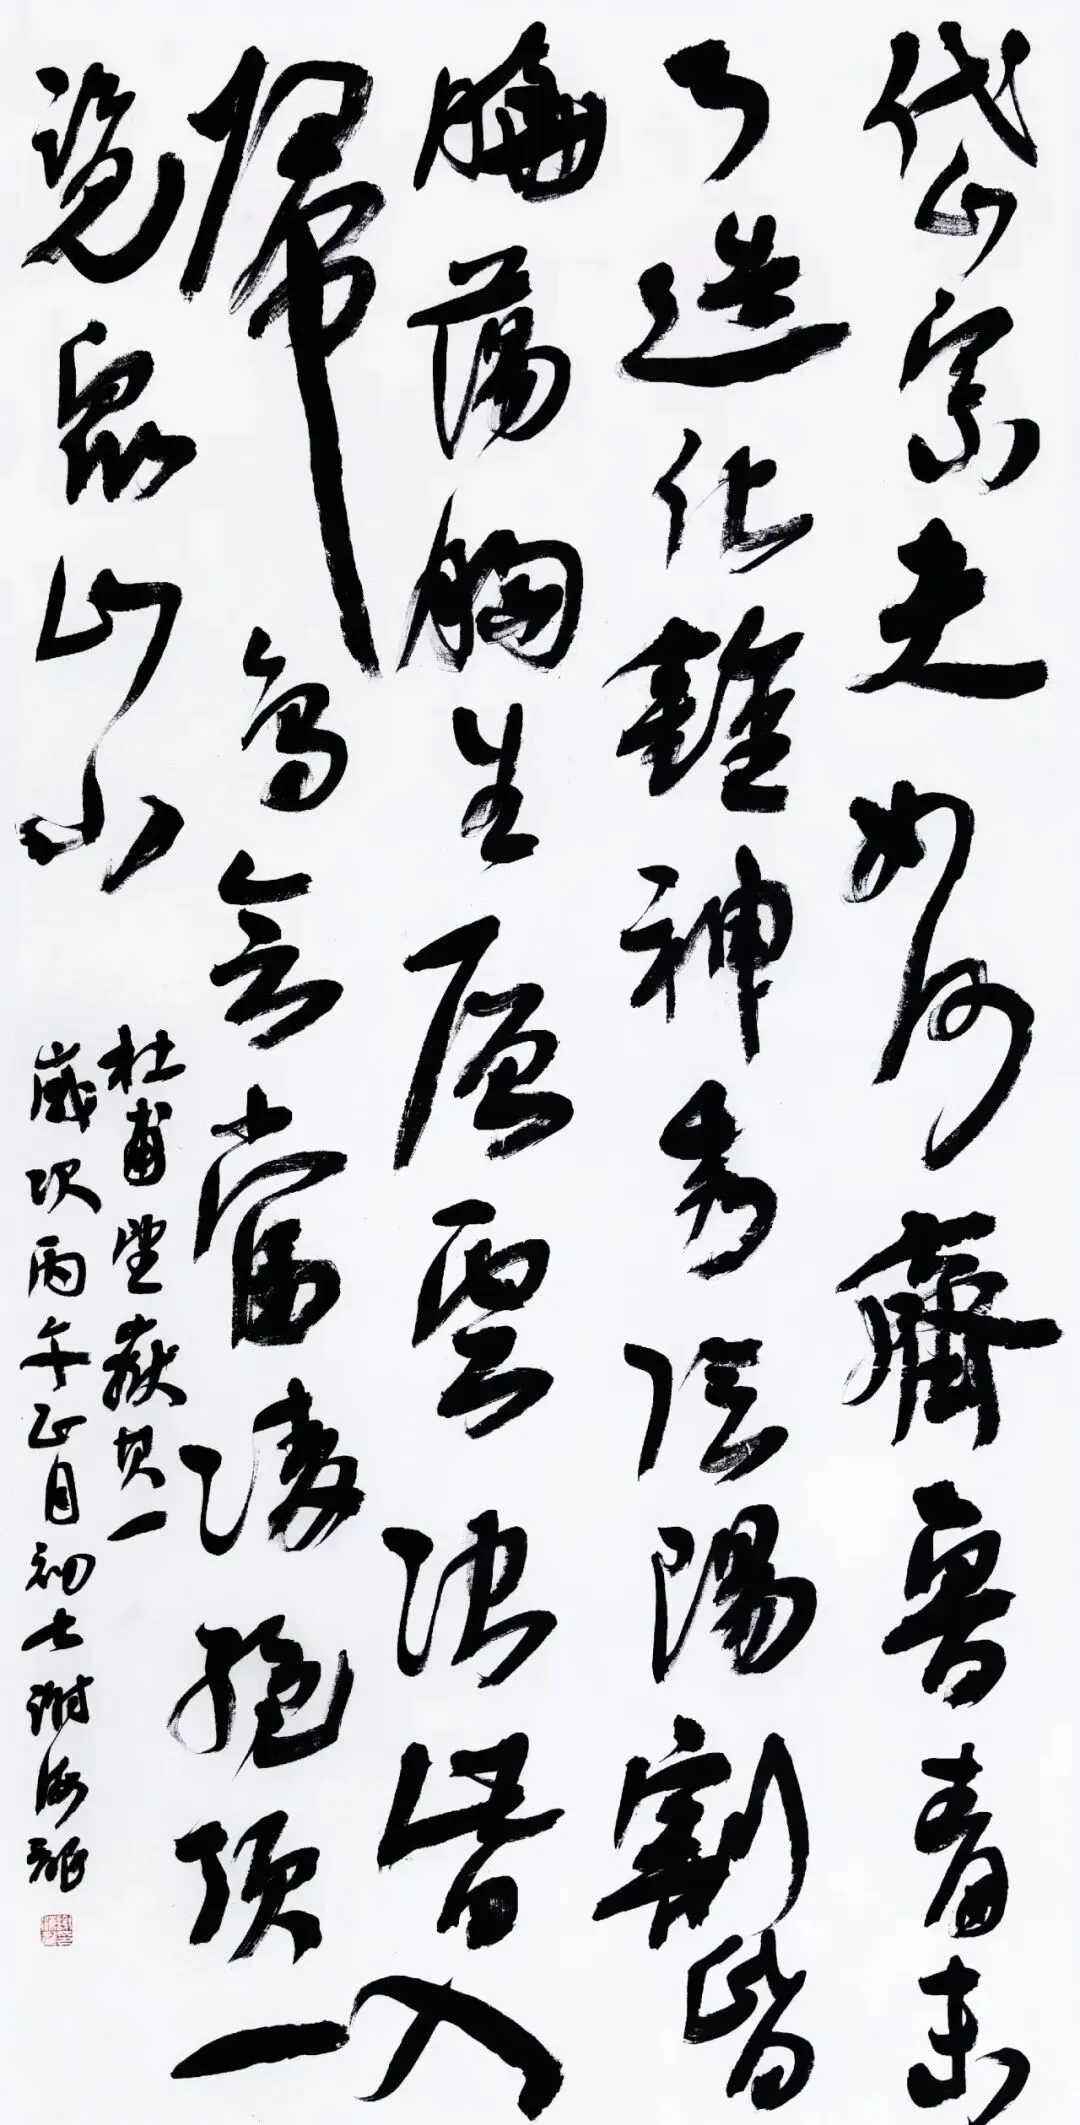 岱宗夫如何齊魯青未
了造化鍾神秀陰陽割昏
曉蕩胸生層雲決眥入
歸鳥會當凌絕頂一
覽眾山小
杜甫望嶽其一
歲次丙午正月初七謝海